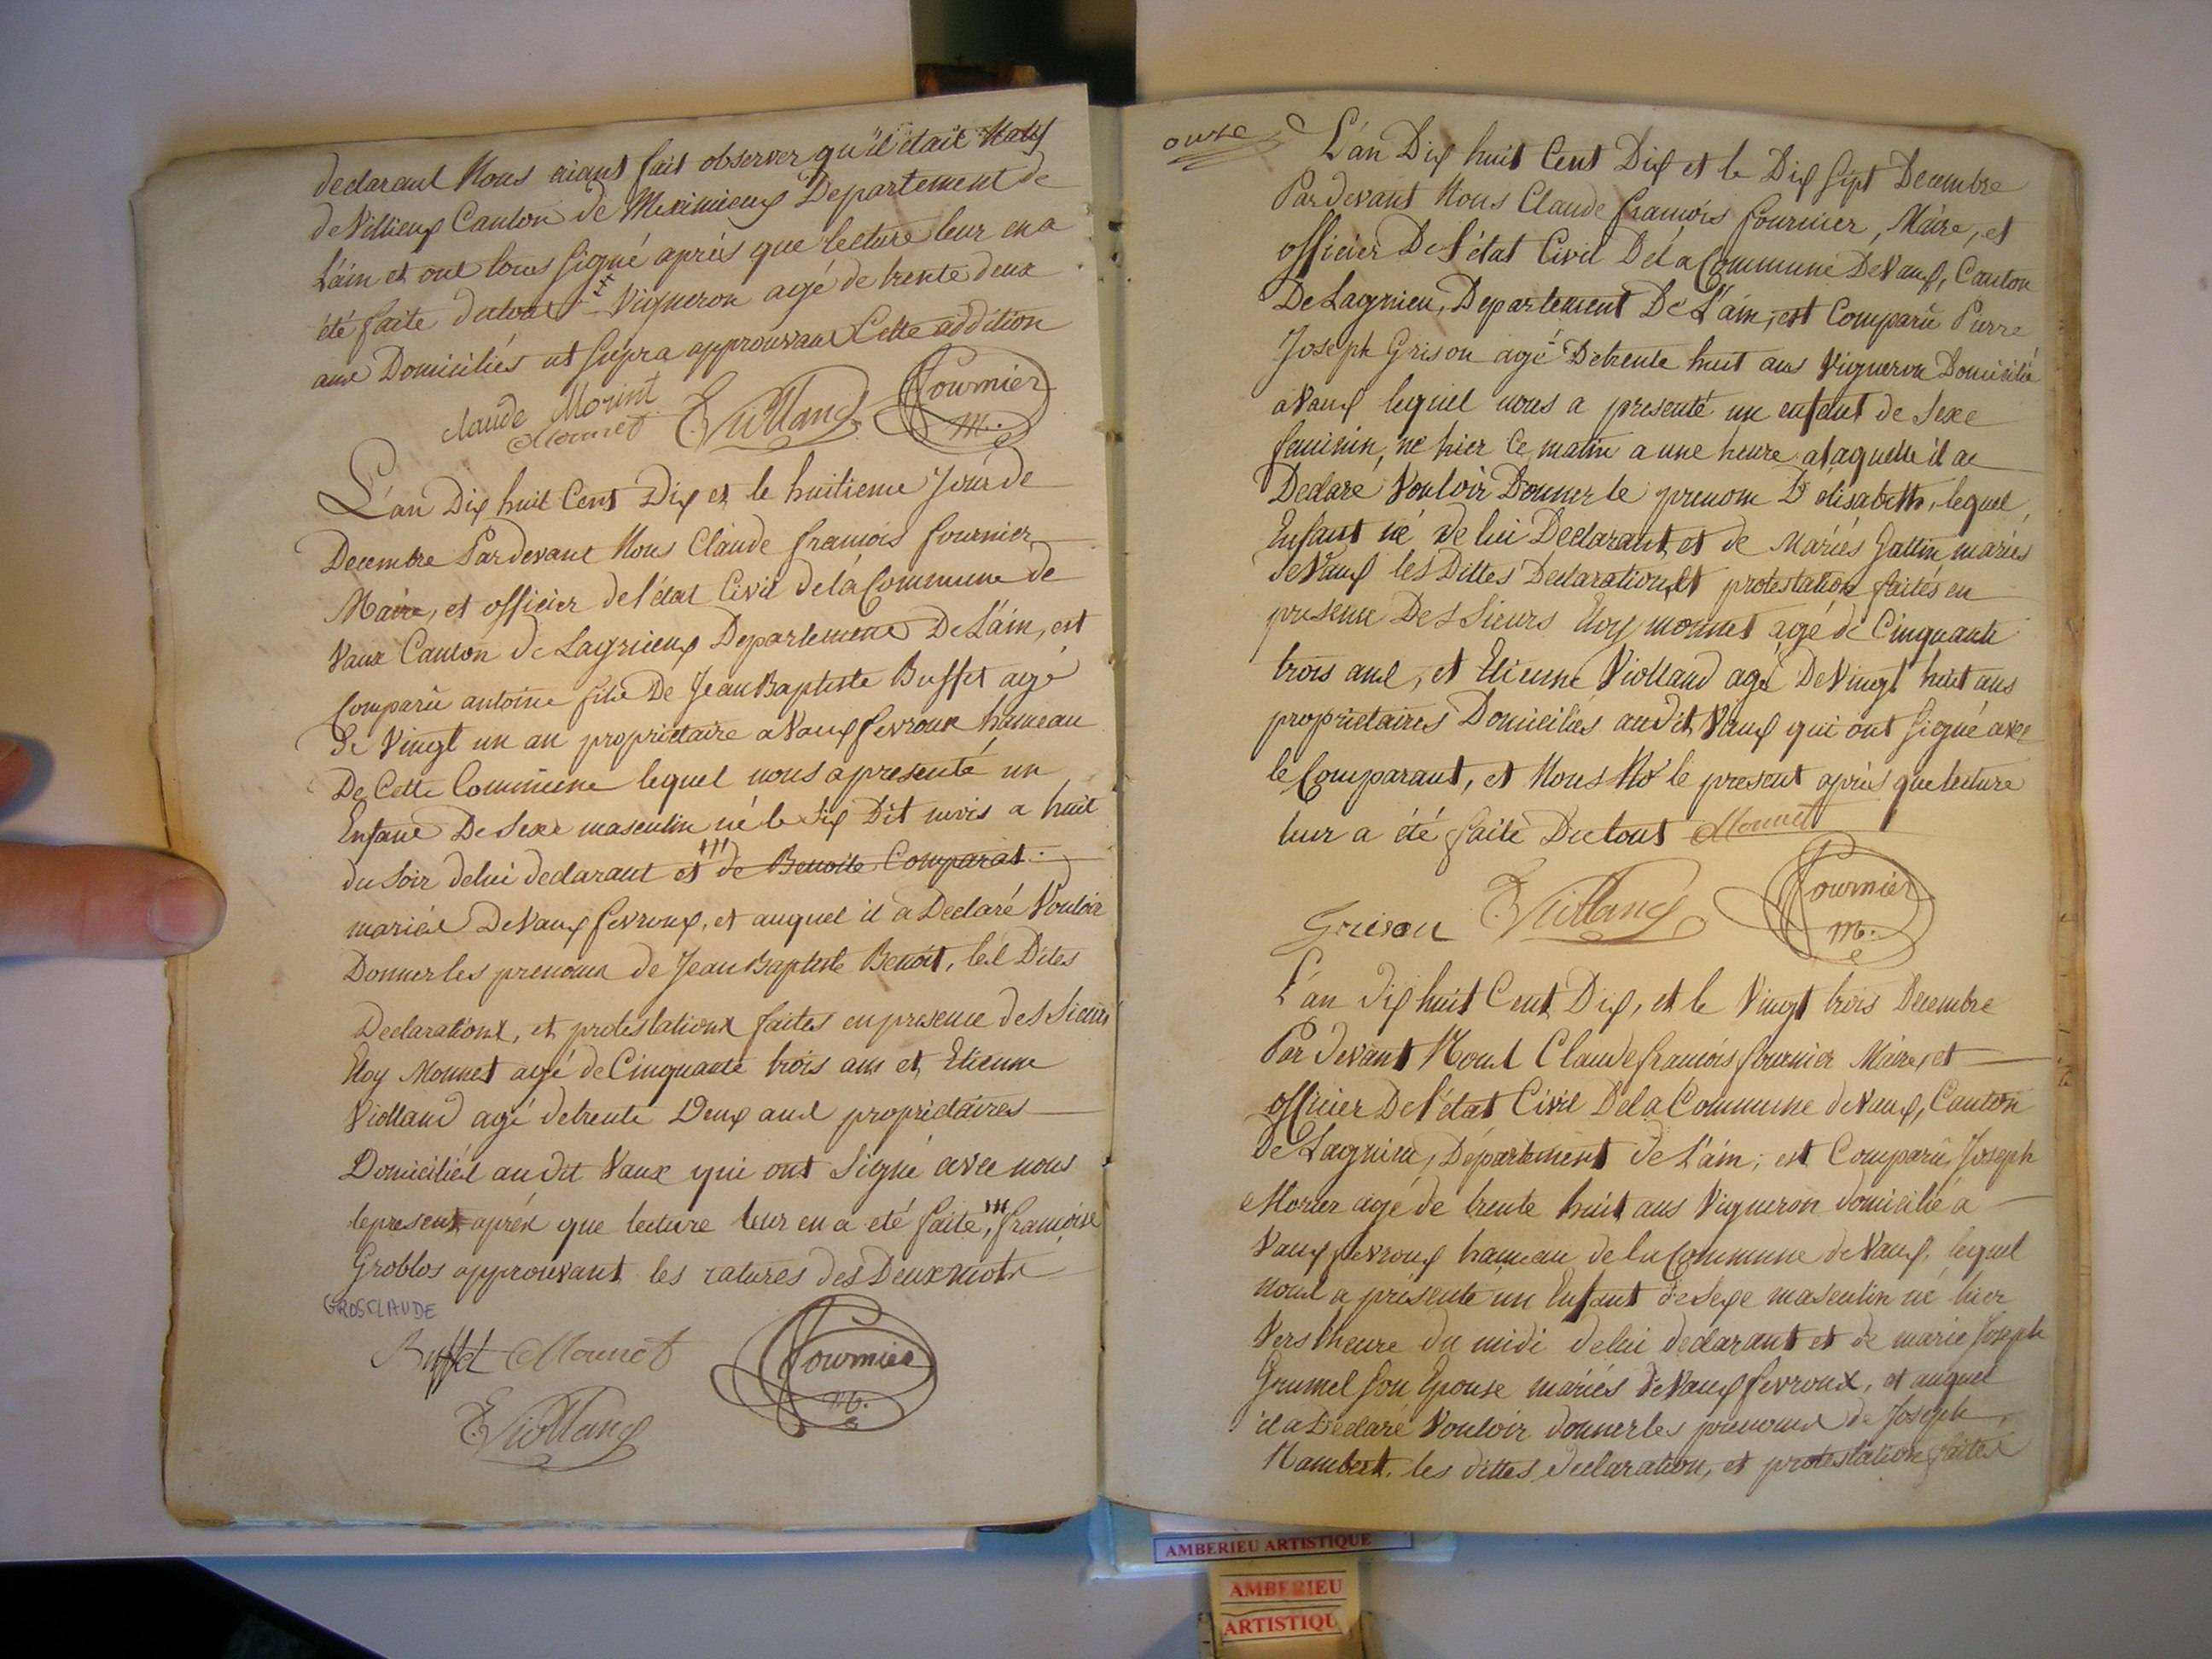 declarant Nous aiant fait observer qu'il était Natif
de Villieux Canton de Meximieux Departement de
L'ain et ont tous signé après que lecture leur en a
été faite du tout Vigneron agé de trente deux
ans Domiciliés ut supra approuvant Cette addition
claude Morint
Monnet EViolland Fournier
m.
L'an Dix huit Cent Dix et le huitieme Jour de
Decembre Pardevant Nous Claude francois fournier
Maire, et officier de l'état Civil de la Commune de
Vaux Canton de Lagnieux Departement De L'ain, est
Comparu antoine fils De Jean Baptiste Buffet agé
de Vingt un an propriétaire a Vaux fevroux hameau
De Cette Commune lequel nous a presenté un
Enfant De Sexe masculin né le Six Dit mois a huit
du soir de lui declarant et de Benoite Comparat
mariés De Vaux fevroux, et auquel il a Declaré Vouloir
Donner les prenoms de Jean Baptiste Benoit, les Dites
Declarations, et protestations faites en presence des Sieurs
Eloy Monnet agé de Cinquante trois ans et Etienne
Violland agé de trente Deux ans propriétaires
Domiciliés au dit Vaux qui ont Signé avec nous
le present après que lecture leur en a eté faite, francoise
Groblos approuvant les ratures des Deux mots
GROSCLAUDE
Buffet Monnet Fournier
m.
EViolland
onze
L'an Dix huit Cent Dix et le Dix Sept Decembre
Pardevant Nous Claude francois fournier, Maire, et
officier De l'état Civil De la Commune De Vaux, Canton
De Lagnieu, Departement De L'ain, est Comparu Pierre
Joseph Grison agé De trente huit ans Vigneron Domicilié
a Vaux lequel nous a presenté un enfant de Sexe
feminin, né hier Ce matin a une heure a laquelle il a
Declare Vouloir Donner le prenom D'elisabeth, lequel
Enfant né de lui Declarant et de Mariés Gallin mariés
de Vaux les Dittes Declarations, et protestation faites en
presence Des Sieurs Eloy monnet agé de Cinquante
trois ans, et Etienne Violland agé De Vingt huit ans
propriétaires Domiciliés au dit Vaux qui ont Signé avec
le Comparant, et Nous le present après que lecture
leur a été faite Du tout Monnet
Grison EViolland Fournier
m.
L'an dix huit Cent Dix, et le Vingt trois Decembre
Par devant Nous Claude francois fournier Maire, et
officier De l'état Civil De la Commune de Vaux, Canton
de Lagnieu, Département de L'ain, est Comparu Joseph
Morier agé de trente huit ans Vigneron domicilié a
Vaux fevroux hameau de la Commune de Vaux, lequel
nous a présenté un Enfant de Sexe masculin né hier
Vers l'heure du midi de lui declarant et de marie Joseph
Grumel son Epouse mariés de Vaux fevroux, et auquel
il a Déclaré Vouloir donner les prenoms de Joseph
Rambert, les dittes declaration, et protestation faites
AMBERIEU ARTISTIQUE
AMBERIEU
ARTISTIQU